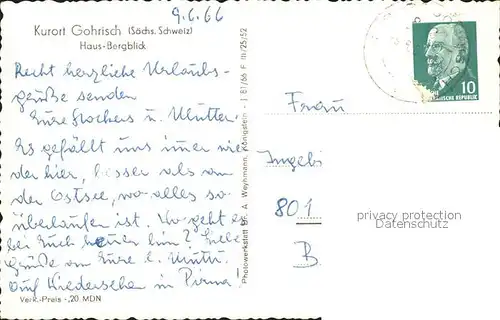 9.6.66
Kurort Gohrisch (Sächs. Schweiz)
Haus-Bergblick
Recht herzliche Urlaubs-
grüße senden
Eure u. Mutter.
Es gefällt uns imer wie
der hier, besser als an
der Ostsee, wo alles so
überlaufen ist. Wo geht es
bei Euch hin? Liebe
Grüße an Eure l. Mutti.
Auf Wiedersehn in Pirna!
Verk.-Preis -,20 MDN
Photowerkstatt A. Weyhmann, Königstein - J 81/66 F III/25/52
10
REPUBLIK
Frau
Ingeb
801
B.
privacy protection
Datenschutz